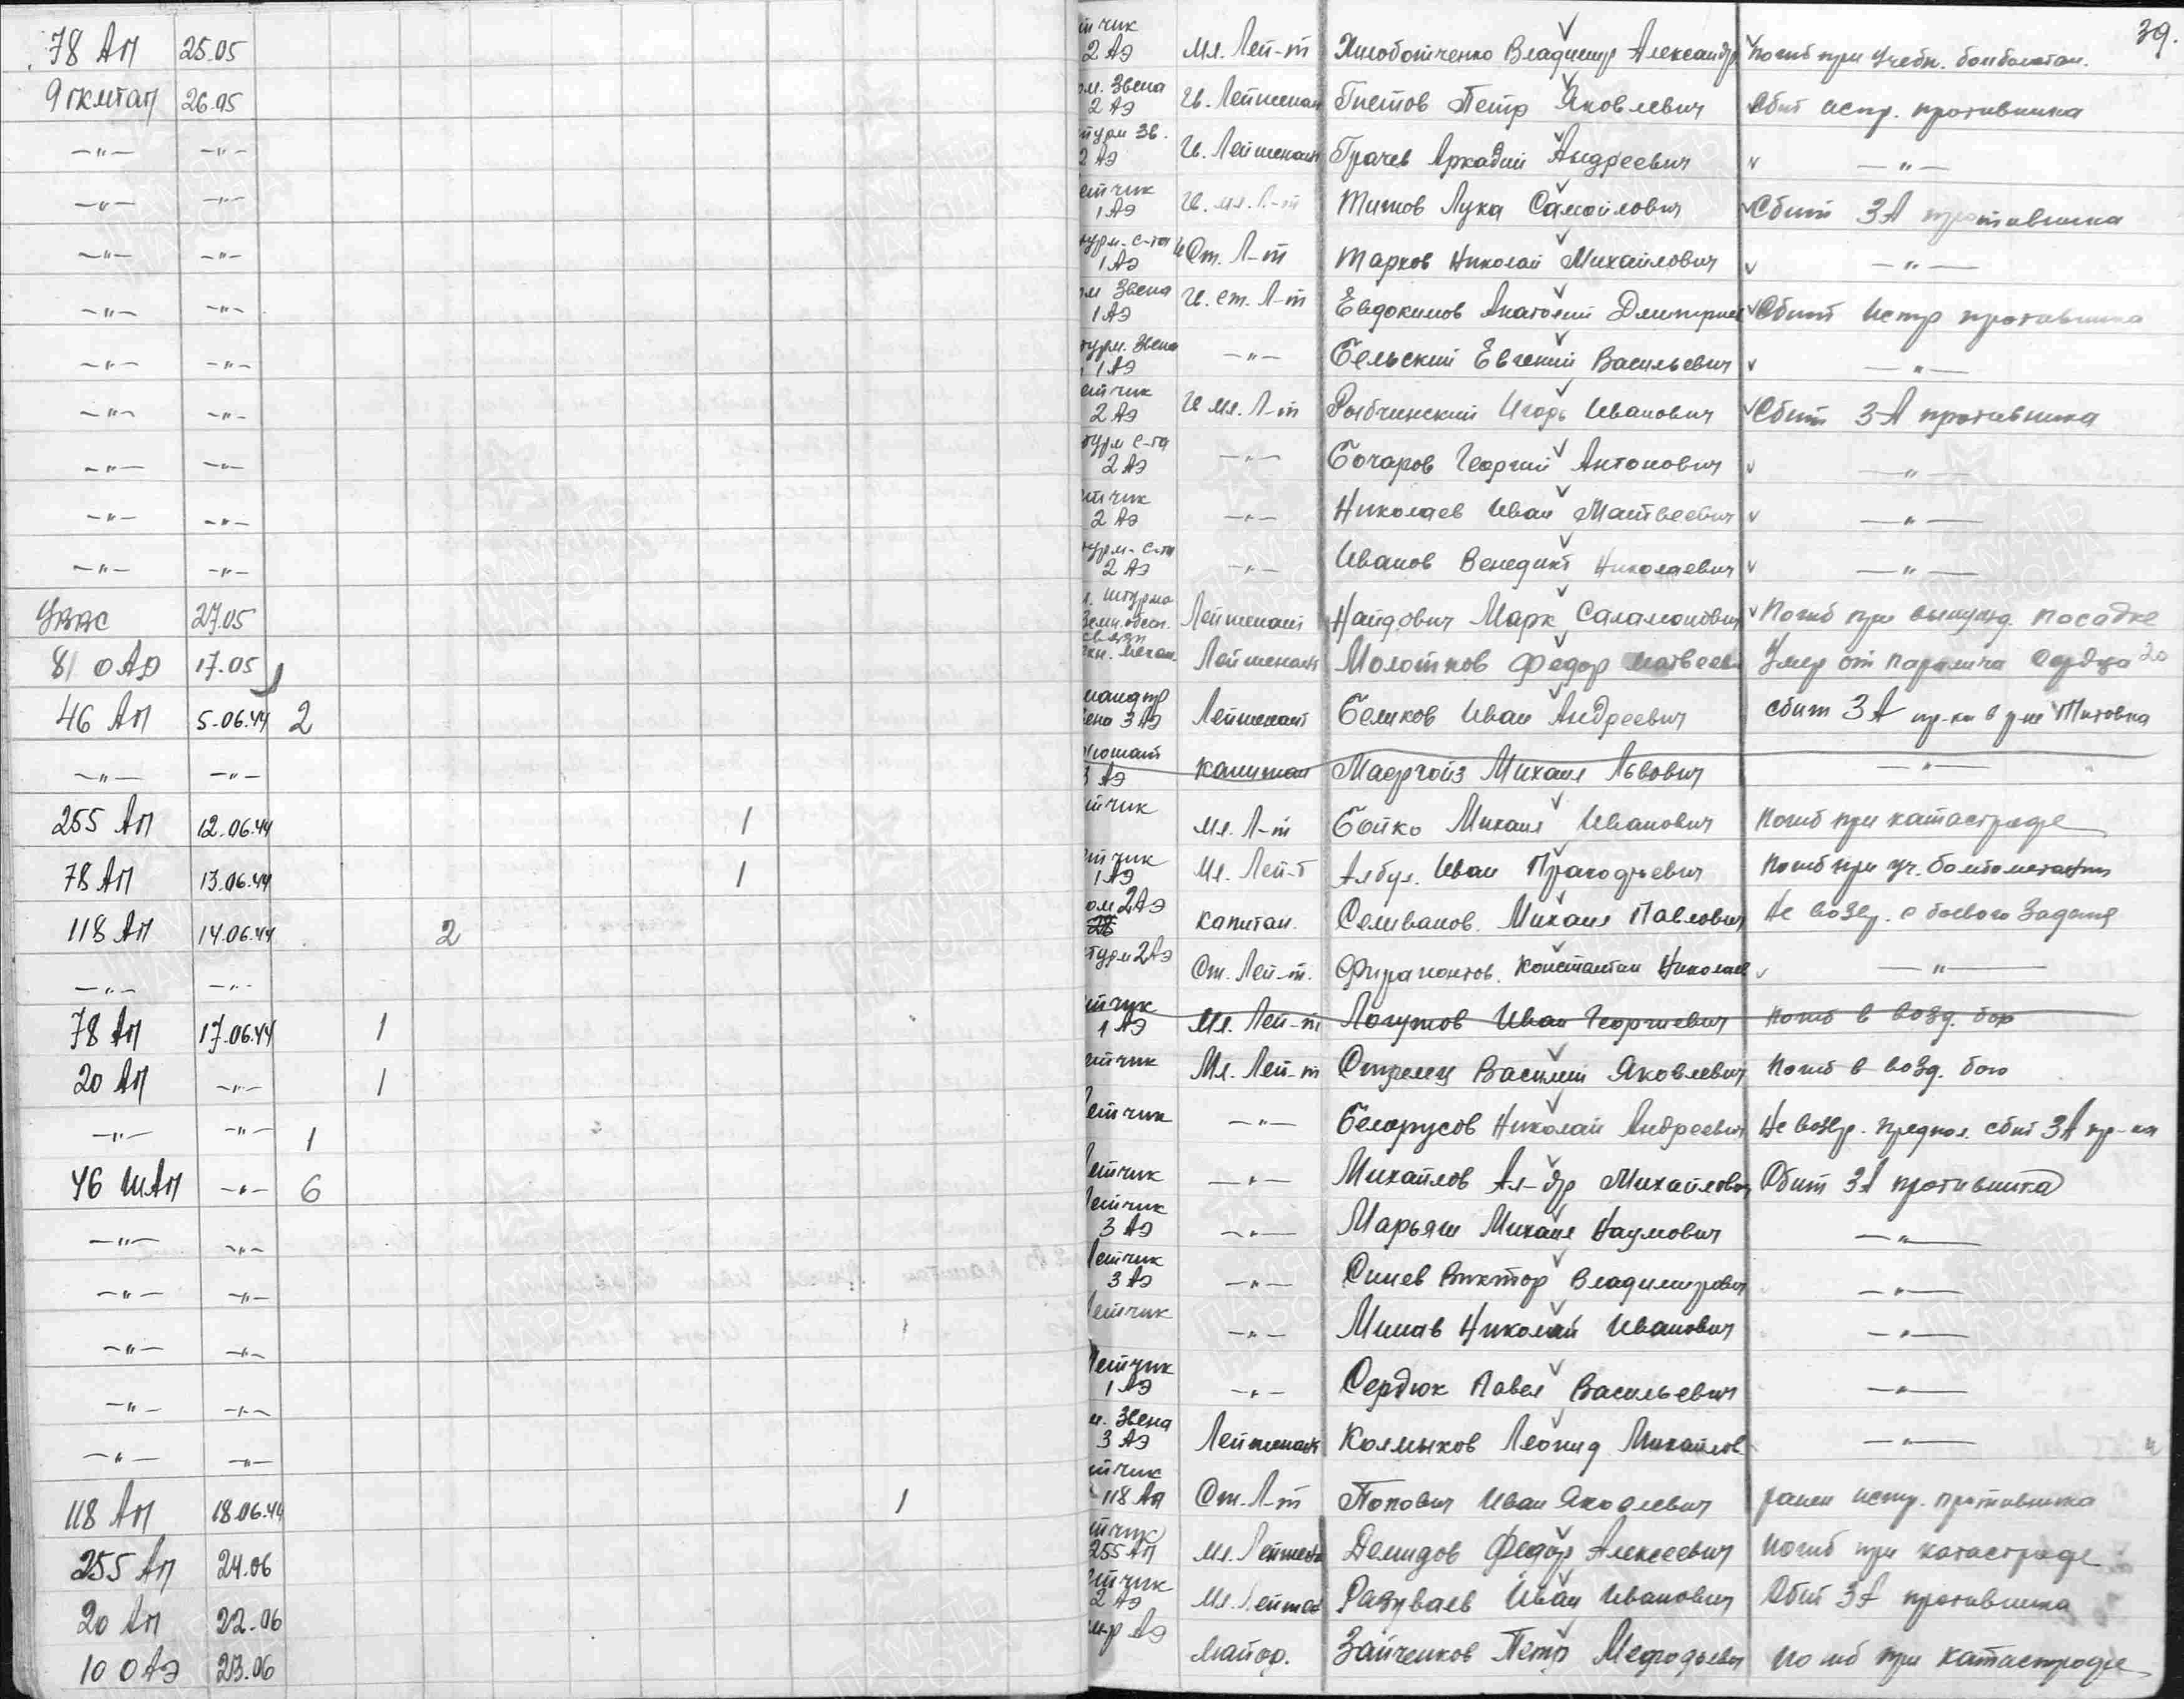 39.
78 АП 25.05 тчик 2 АЭ Мл. Лей-т Хилоботченко Владимир Александр Погиб при учебн. бомбометан.
9 гкмтап 26.05 ом. Звена 2 АЭ Гв. Лейтенан Гнетов Петр Яковлевич Сбит истр. противника
—"— —"— турм Зв. 2 АЭ Гв. Лейтенант Грачев Аркадий Андреевич —"—
—"— —"— етчик 1 АЭ Гв. мл. Л-т Титов Лука Самойлович Сбит ЗА противника
—"— —"— турм. с-та 1 АЭ Ст. Л-т Тарков Николай Михайлович —"—
—"— —"— ом Звена 1 АЭ Гв. ст. Л-т Евдокимов Анатолий Дмитриев Сбит Истр противника
—"— —"— турм. Звена 1 АЭ —"— Бельский Евгений Васильевич —"—
—"— —"— етчик 2 АЭ Гв мл. Л-т Рыбчинский Игорь Иванович Сбит ЗА противника
—"— —"— турм с-та 2 АЭ —"— Бочаров Георгий Антонович —"—
—"— —"— етчик 2 АЭ —"— Николаев Иван Матвеевич —"—
—"— —"— турм. с-та 2 АЭ —"— Иванов Венедикт Николаевич —"—
УВВС 27.05 штурма Земн. обесп. связи Лейтенант Найдович Марк Саламонович Погиб при вынужд. посадке
81 ОАЭ 17.05 Лейтенант Молотков Федор Матвееви Умер от паралича сердца 20
46 АП 5.06.44 2 мандир ена 3 АЭ Лейтенант Беликов Иван Андреевич сбит ЗА пр-ка в р-не Титовка
—"— —"— ютант 3 АЭ капитан Мадргойз Михаил Львович —"—
255 АП 12.06.44 1 тчик Мл. Л-т Бойко Михаил Иванович Погиб при катастрофе
78 АП 13.06.44 1 тчик 1 АЭ Мл. Лей-т Албул Иван Пракофьевич Погиб при уч. бомбометании
118 АП 14.06.44 2 ом 2 АЭ капитан. Селиванов. Михаил Павлович Не возвр. с боевого задания
—"— —"— турм 2 АЭ Ст. Лей-т. Фирапонтов. Константин Николаев —"—
78 АП 17.06.44 1 тчик 1 АЭ Мл. Лей-т Логутов Иван Георгиевич погиб в возд. бою
20 АП —"— 1 етчик Мл. Лей-т Стрелец Василий Яковлевич Погиб в возд. бою
—"— —"— 1 Летчик —"— Белорусов Николай Андреевич Не возвр. предпол. сбит ЗА пр-ка
46 ШАП —"— 6 Летчик —"— Михайлов Ал-др Михайлович Сбит ЗА противника
—"— —"— Летчик 3 АЭ —"— Марьяш Михаил Наумович —"—
—"— —"— Летчик 3 АЭ —"— Синев Виктор Владимирович —"—
—"— —"— Летчик —"— Минав Николай Иванович —"—
—"— —"— Летчик 1 АЭ —"— Сердюк Павел Васильевич —"—
—"— —"— м. Звена 3 АЭ Лейтенант Колмыков Леонид Михайлов —"—
118 АП 18.06.44 1 тчик 118 АП Ст. Л-т Попович Иван Яковлевич ранен истр. противника
255 АП 24.06 тчик 255 АП Мл. Лейтена Демидов Федор Алексеевич погиб при катастрофе
20 АП 22.06 етчик 2 АЭ Мл. Лейтен Разуваев Иван Иванович Сбит ЗА противника
10 ОАЭ 23.06 м-р АЭ Майор. Зайченков Петр Мефодьевич погиб при катастрофе